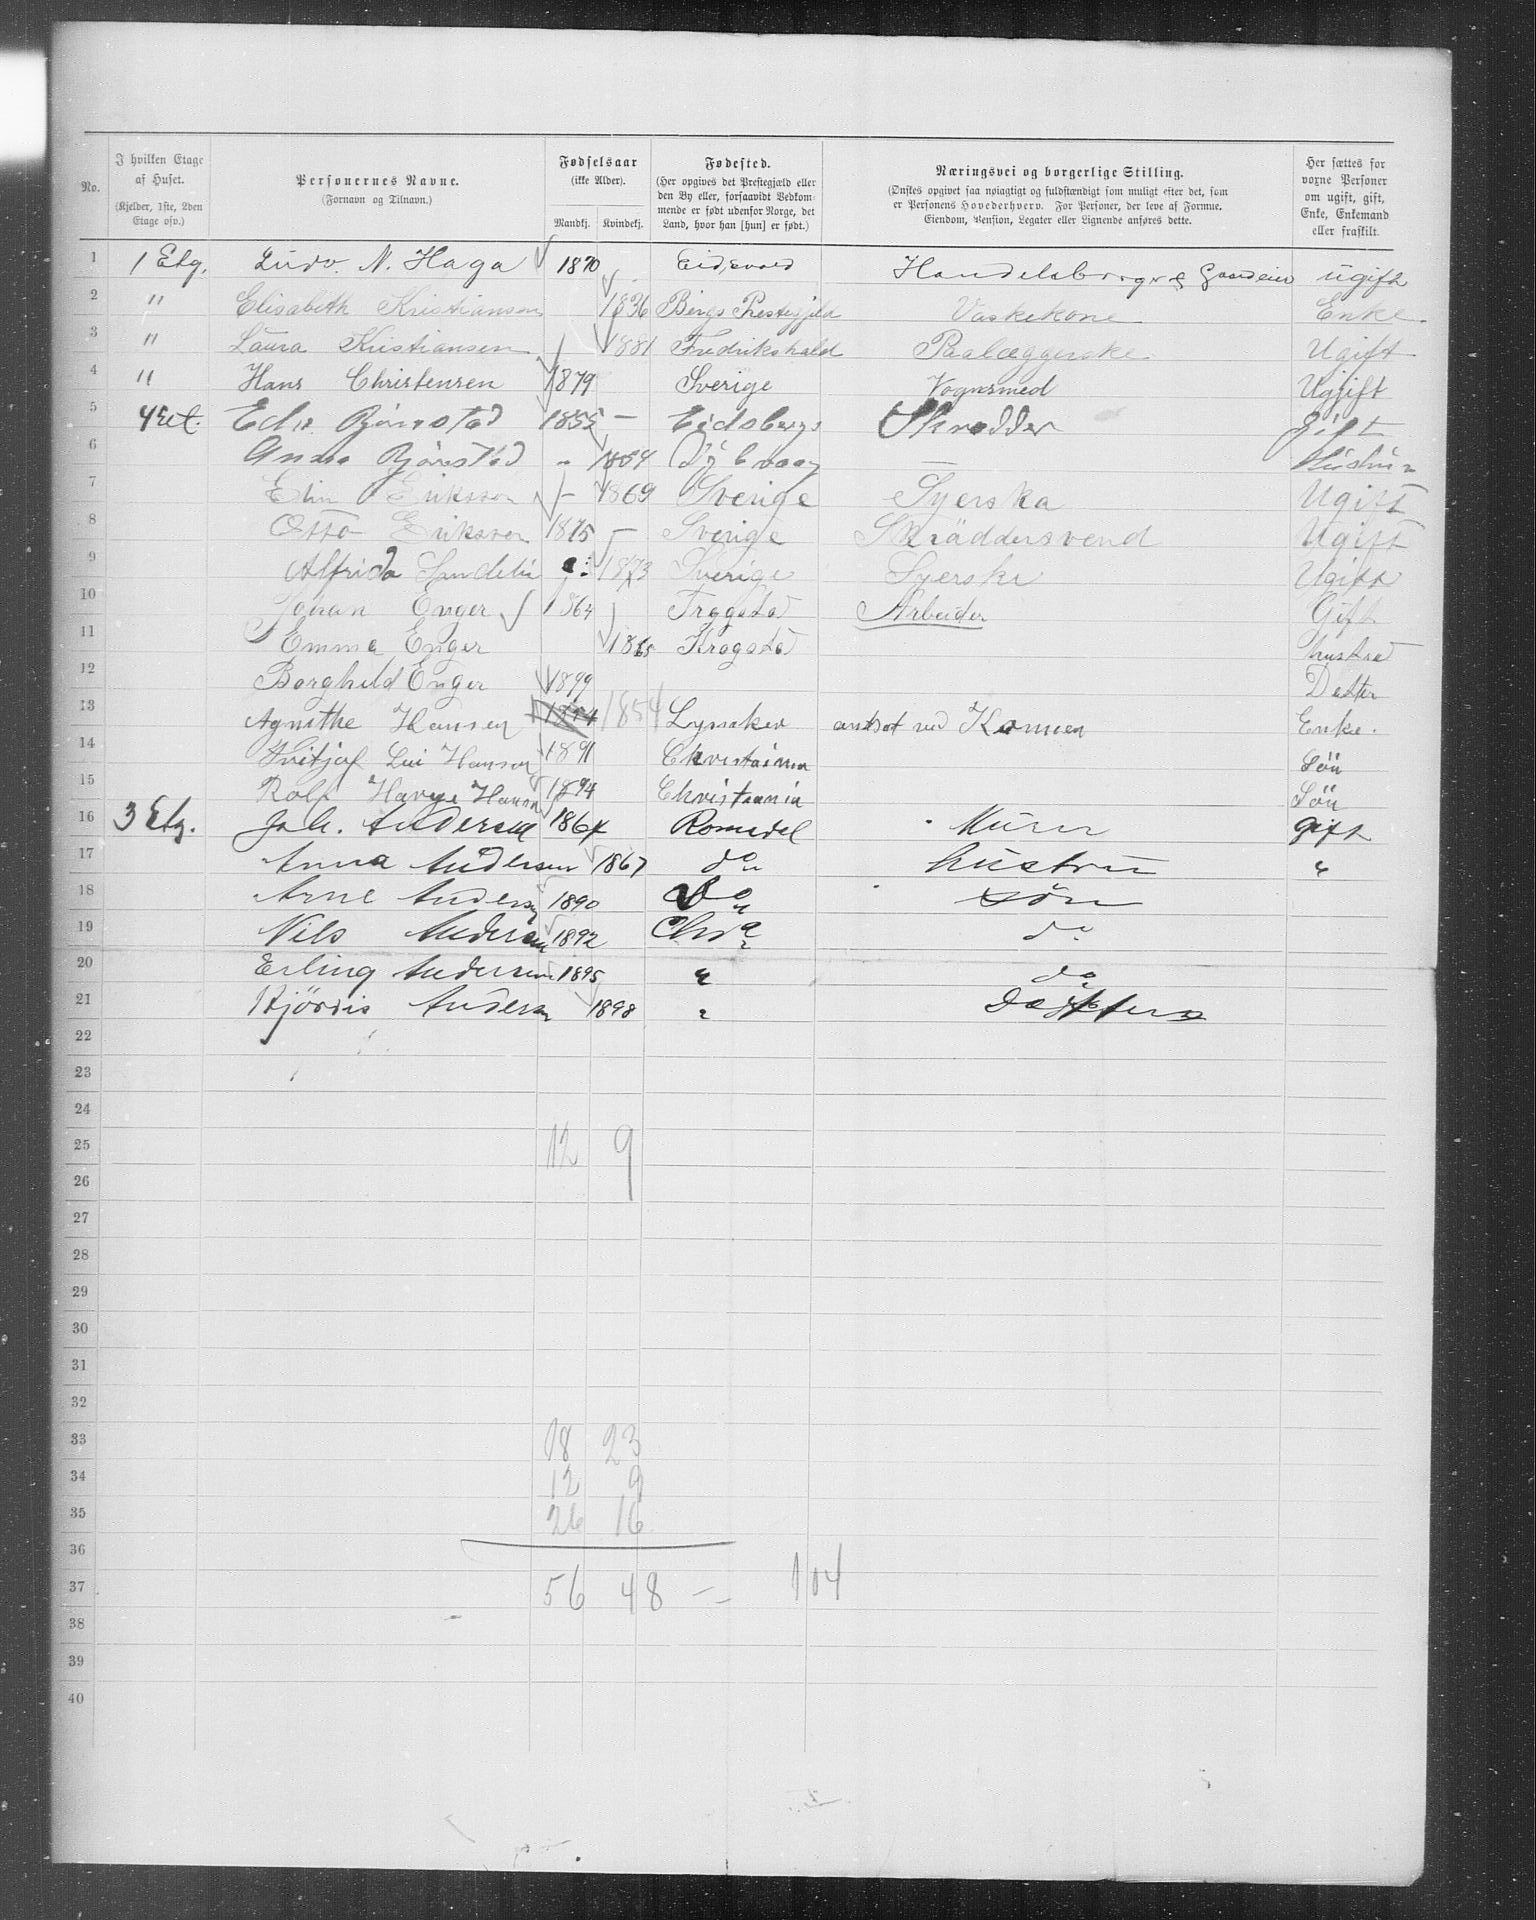 No. | I hvilken Etage af Huset. (Kjelder, 1ste, 2den Etage osv.) | Personernes Navne. (Fornavn og Tilnavn.) | Fødselsaar (ikke Alder). Mandkj. Kvindekj. | Fødested. (Her opgives det Prestegjæld eller den By eller, forsaavidt Vedkommende er født udenfor Norge, det Land, hvor han [hun] er født.) | Næringsvei og borgerlige Stilling. (Ønskes opgivet saa nøiagtigt og fuldstændigt som muligt efter det, som er Personens Hovederhverv. For Personer, der leve af Formue, Eiendom, Pension, Legater eller Lignende anføres dette.) | Her sættes for voxne Personer om ugift, gift, Enke, Enkemand eller fraskilt.
1 1 Etg. Ludv. N. Haga 1870 Eidsvold Handelsborger & Gaardeier ugift
2 " Elisabeth Kristiansen 1836 Bergs Prestegjeld Vaskekone Enke.
3 " Laura Kristiansen 1881 Fredrikshald Paalæggerske Ugift
4 " Hans Christensen 1879 Sverige Vognsmed Ugift
5 4 Et. Edv. Bjørnstad 1855 — Eidsberg Skrædder Gift
6 Anna Bjørnstad " 1854 Dybvaag — Hustru
7 Elin Eriksson — 1869 Sverige Syerska Ugift
8 Otto Eriksson 1875 — Sverige Skräddersvend Ugift
9 Alfrida 1873 Sverige Syerske Ugift
10 Johan Enger 1864 Trøgstad Arbeider Gift
11 Emma Enger 1865 Krogstad hustru
12 Borghild Enger 1899 Datter
13 Agnethe Hansen 1854 1854 Lysaker ansat ved Kranen Enke.
14 Fritjof Hansen 1891 Christiania Søn
15 Rolf Hansen 1894 Christiania Søn
16 3 Etg. Joh. Andersen 1864 Romedal Murer gift
17 Anna Andersen 1867 do hustru "
18 Arne Andersen 1890 Do søn
19 Nils Andersen 1892 Chra do
20 Erling Andersen 1895 " do
21 Hjørdis Andersen 1898 " Datter
22
23
24
25 12 9
26
27
28
29
30
31
32
33 18 23
34 12 9
35 26 16
36
37 56 48 — 104
38
39
40